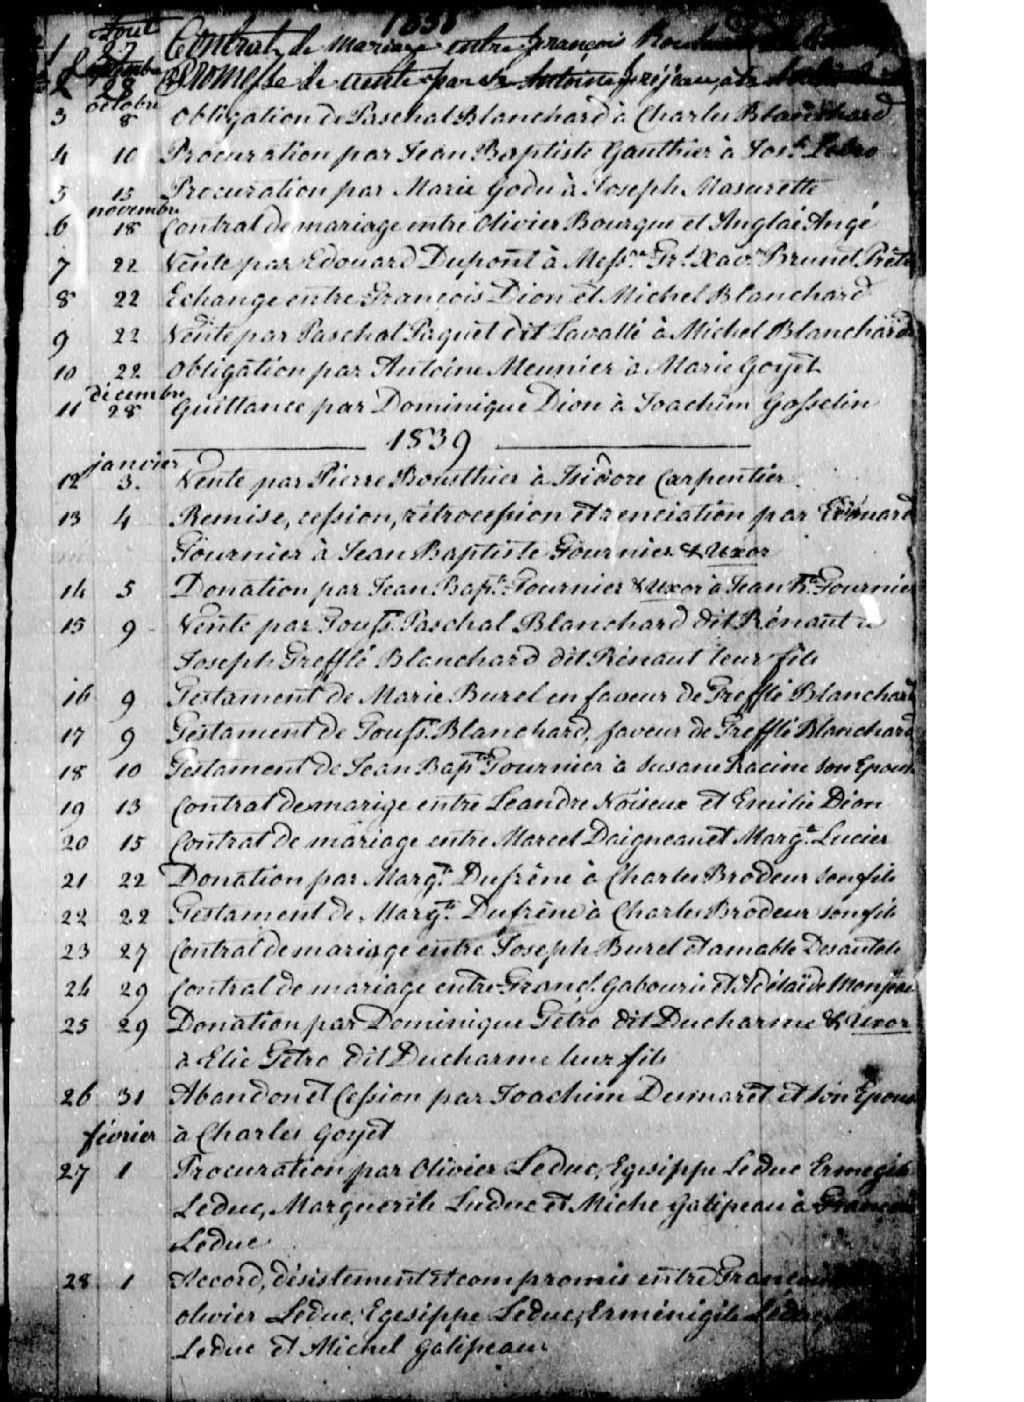 1838
Aout
1 27 Contrat de Mariage entre françois
septembre
2 28 Promesse de vente par Antoine préjeau, à
octobre
3 8 Obligation de Paschal Blanchard à Charles Blanchard
4 10 Procuration par Jean Baptiste Gauthier à Josh.
5 15 Procuration par Marie Godu à Joseph Masurette
novembre
6 18 Contrat de mariage entre Olivier Bourque et Anglaé Angé
7 22 Vente par Edouard Dupont à Messre. Frs. Xavr. Brunet, Prêtre
8 22 Echange entre François Dion et Michel Blanchard
9 22 Vente par Paschal Paquet dit Lavallé à Michel Blanchard
10 22 Obligation par Antoine Meunier à Marie Goyet
décembre
11 28 Quittance par Dominique Dion à Joachim Gosselin
1839
janvier
12 3. Vente par Pierre Bousthier à Isidore Carpentier.
13 4 Remise, cession, rétrocession et renciation par Edouard
Fournier à Jean Baptiste Fournier & Uxor
14 5 Donation par Jean Bapte. Fournier & Uxor à Jean Bte. Fournier
15 9 Vente par Touss. Paschal Blanchard dit Rénaut à
Joseph Grefflé Blanchard dit Rénaut leur fils
16 9 Testament de Marie Burel en faveur de Grefflé Blanchard
17 9 Testament de Touss. Blanchard, faveur de Grefflé Blanchard
18 10 Testament de Jean Bapte. Fournier à Susane Racine son Epouse
19 13 Contrat de marige entre Leandre Noiseux et Emilie Dion
20 15 Contrat de mariage entre Marcel Daigneau et Margte. Lucier
21 22 Donation par Margte. Dufrêne à Charles Brodeur son fils
22 22 Testament de Margte. Dufrêne à Charles Brodeur son fils
23 27 Contrat de mariage entre Joseph Burel et amable Desautels
24 29 Contrat de mariage entre Francs. Gabourie et Adélaïde Monjeau
25 29 Donation par Dominique Pétro dit Ducharme & Uxor
à Elie Pétro dit Ducharme leur fils
26 31 Abandon et Cession par Joachim Desmaret et son Epouse
février à Charles Goyet
27 1 Procuration par Olivier Leduc, Egesippe Leduc
Leduc, Marguerite Leduc et Miche Galipeau à François
Leduc
28 1 Accord, désistement et compromis entre François
olivier Leduc, Egesippe Leduc, Erménigile Leduc,
Leduc et Michel Galipeau